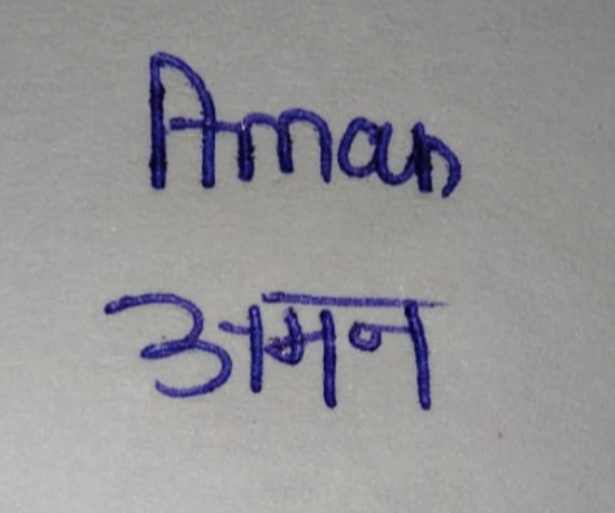 Aman
अमन